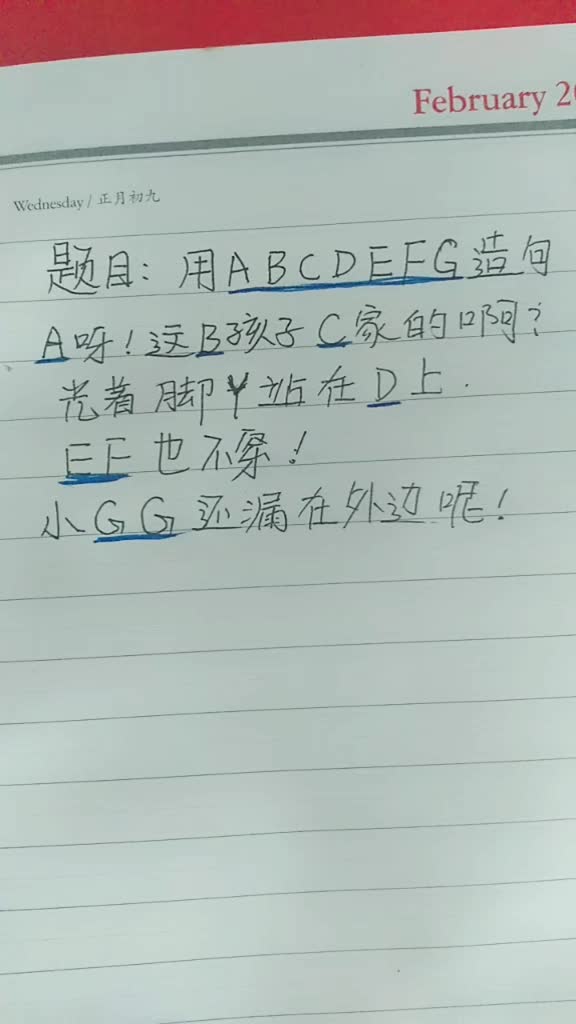 February 20
Wednesday / 正月初九
题目：用ABCDEFG造句
A呀！这B孩子C家的啊？
光着脚丫站在D上.
EF也不穿！
小GG还漏在外边呢！